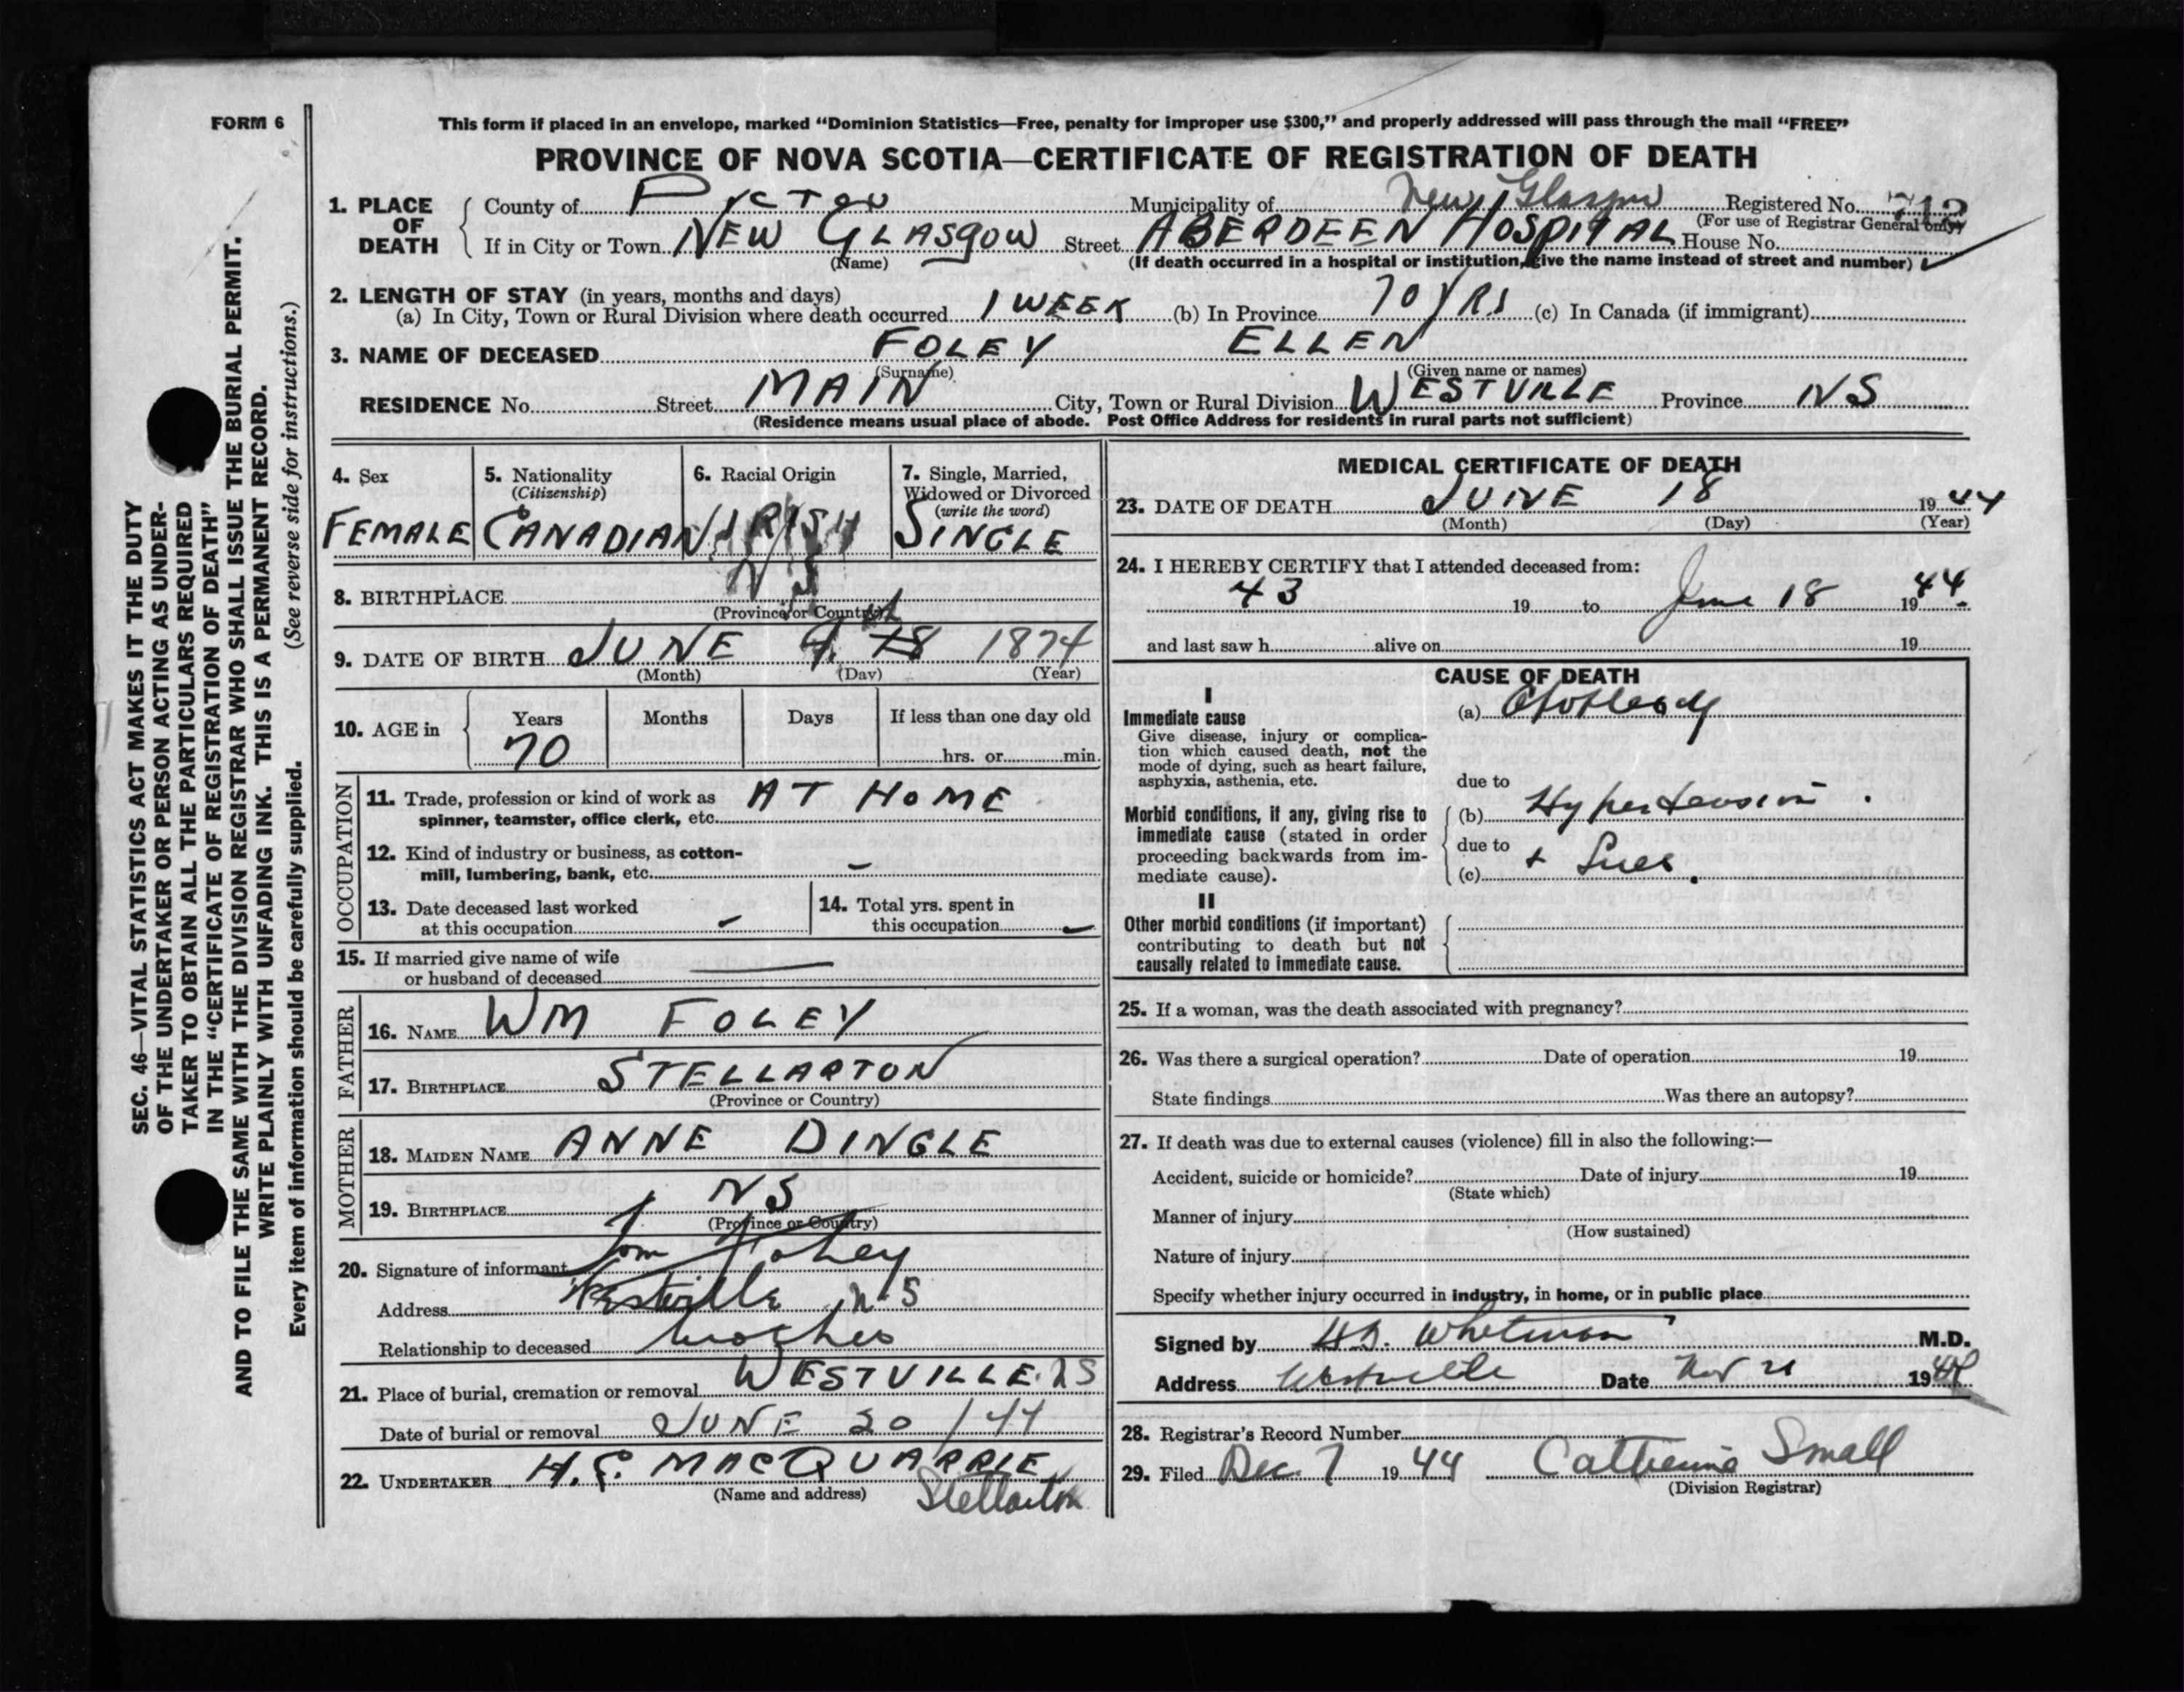 FORM 6
This form if placed in an envelope, marked "Dominion Statistics—Free, penalty for improper use $300," and properly addressed will pass through the mail "FREE"
PROVINCE OF NOVA SCOTIA—CERTIFICATE OF REGISTRATION OF DEATH
1. PLACE OF DEATH County of PICTOU Municipality of New Glasgow Registered No. 712
(For use of Registrar General only)
If in City or Town NEW GLASGOW Street ABERDEEN HOSPITAL House No.
(Name) (If death occurred in a hospital or institution, give the name instead of street and number)
2. LENGTH OF STAY (in years, months and days)
(a) In City, Town or Rural Division where death occurred 1 WEEK (b) In Province 70 YRS (c) In Canada (if immigrant)
3. NAME OF DECEASED FOLEY ELLEN
(Surname) (Given name or names)
RESIDENCE No. Street MAIN City, Town or Rural Division WESTVILLE Province NS
(Residence means usual place of abode. Post Office Address for residents in rural parts not sufficient)
4. Sex
FEMALE
5. Nationality
(Citizenship)
CANADIAN
6. Racial Origin
IRISH
7. Single, Married,
Widowed or Divorced
(write the word)
SINGLE
8. BIRTHPLACE NS
(Province or Country)
9. DATE OF BIRTH JUNE 4 18 1874
(Month) (Day) (Year)
10. AGE in Years Months Days If less than one day old
70 hrs. or min.
OCCUPATION
11. Trade, profession or kind of work as
spinner, teamster, office clerk, etc. AT HOME
12. Kind of industry or business, as cotton-
mill, lumbering, bank, etc. –
13. Date deceased last worked
at this occupation –
14. Total yrs. spent in
this occupation –
15. If married give name of wife
or husband of deceased —
FATHER
16. NAME WM FOLEY
17. BIRTHPLACE STELLARTON
(Province or Country)
MOTHER
18. MAIDEN NAME ANNE DINGLE
19. BIRTHPLACE NS
(Province or Country)
20. Signature of informant Tom Foley
Address Westville N S
Relationship to deceased brother
21. Place of burial, cremation or removal WESTVILLE. NS
Date of burial or removal JUNE 20 / 44
22. UNDERTAKER H. S. MACQUARRIE
(Name and address) Stellarton
MEDICAL CERTIFICATE OF DEATH
23. DATE OF DEATH JUNE 18 1944
(Month) (Day) (Year)
24. I HEREBY CERTIFY that I attended deceased from:
43 19 to June 18 1944.
and last saw h alive on 19
CAUSE OF DEATH
I
Immediate cause
Give disease, injury or complica-
tion which caused death, not the
mode of dying, such as heart failure,
asphyxia, asthenia, etc.
(a)
due to
Morbid conditions, if any, giving rise to
immediate cause (stated in order
proceeding backwards from im-
mediate cause).
(b) Hypertension.
due to
(c) + Lues.
II
Other morbid conditions (if important)
contributing to death but not
causally related to immediate cause.
25. If a woman, was the death associated with pregnancy?
26. Was there a surgical operation? Date of operation 19
State findings Was there an autopsy?
27. If death was due to external causes (violence) fill in also the following:—
Accident, suicide or homicide? Date of injury 19
(State which)
Manner of injury
(How sustained)
Nature of injury
Specify whether injury occurred in industry, in home, or in public place
Signed by Whitman M.D.
Address Westville Date Nov 21 1944
28. Registrar's Record Number
29. Filed Dec. 7 1944 Catherine Small
(Division Registrar)
SEC. 46—VITAL STATISTICS ACT MAKES IT THE DUTY
OF THE UNDERTAKER OR PERSON ACTING AS UNDER-
TAKER TO OBTAIN ALL THE PARTICULARS REQUIRED
IN THE "CERTIFICATE OF REGISTRATION OF DEATH"
AND TO FILE THE SAME WITH THE DIVISION REGISTRAR WHO SHALL ISSUE THE BURIAL PERMIT.
WRITE PLAINLY WITH UNFADING INK. THIS IS A PERMANENT RECORD.
Every item of information should be carefully supplied. (See reverse side for instructions.)